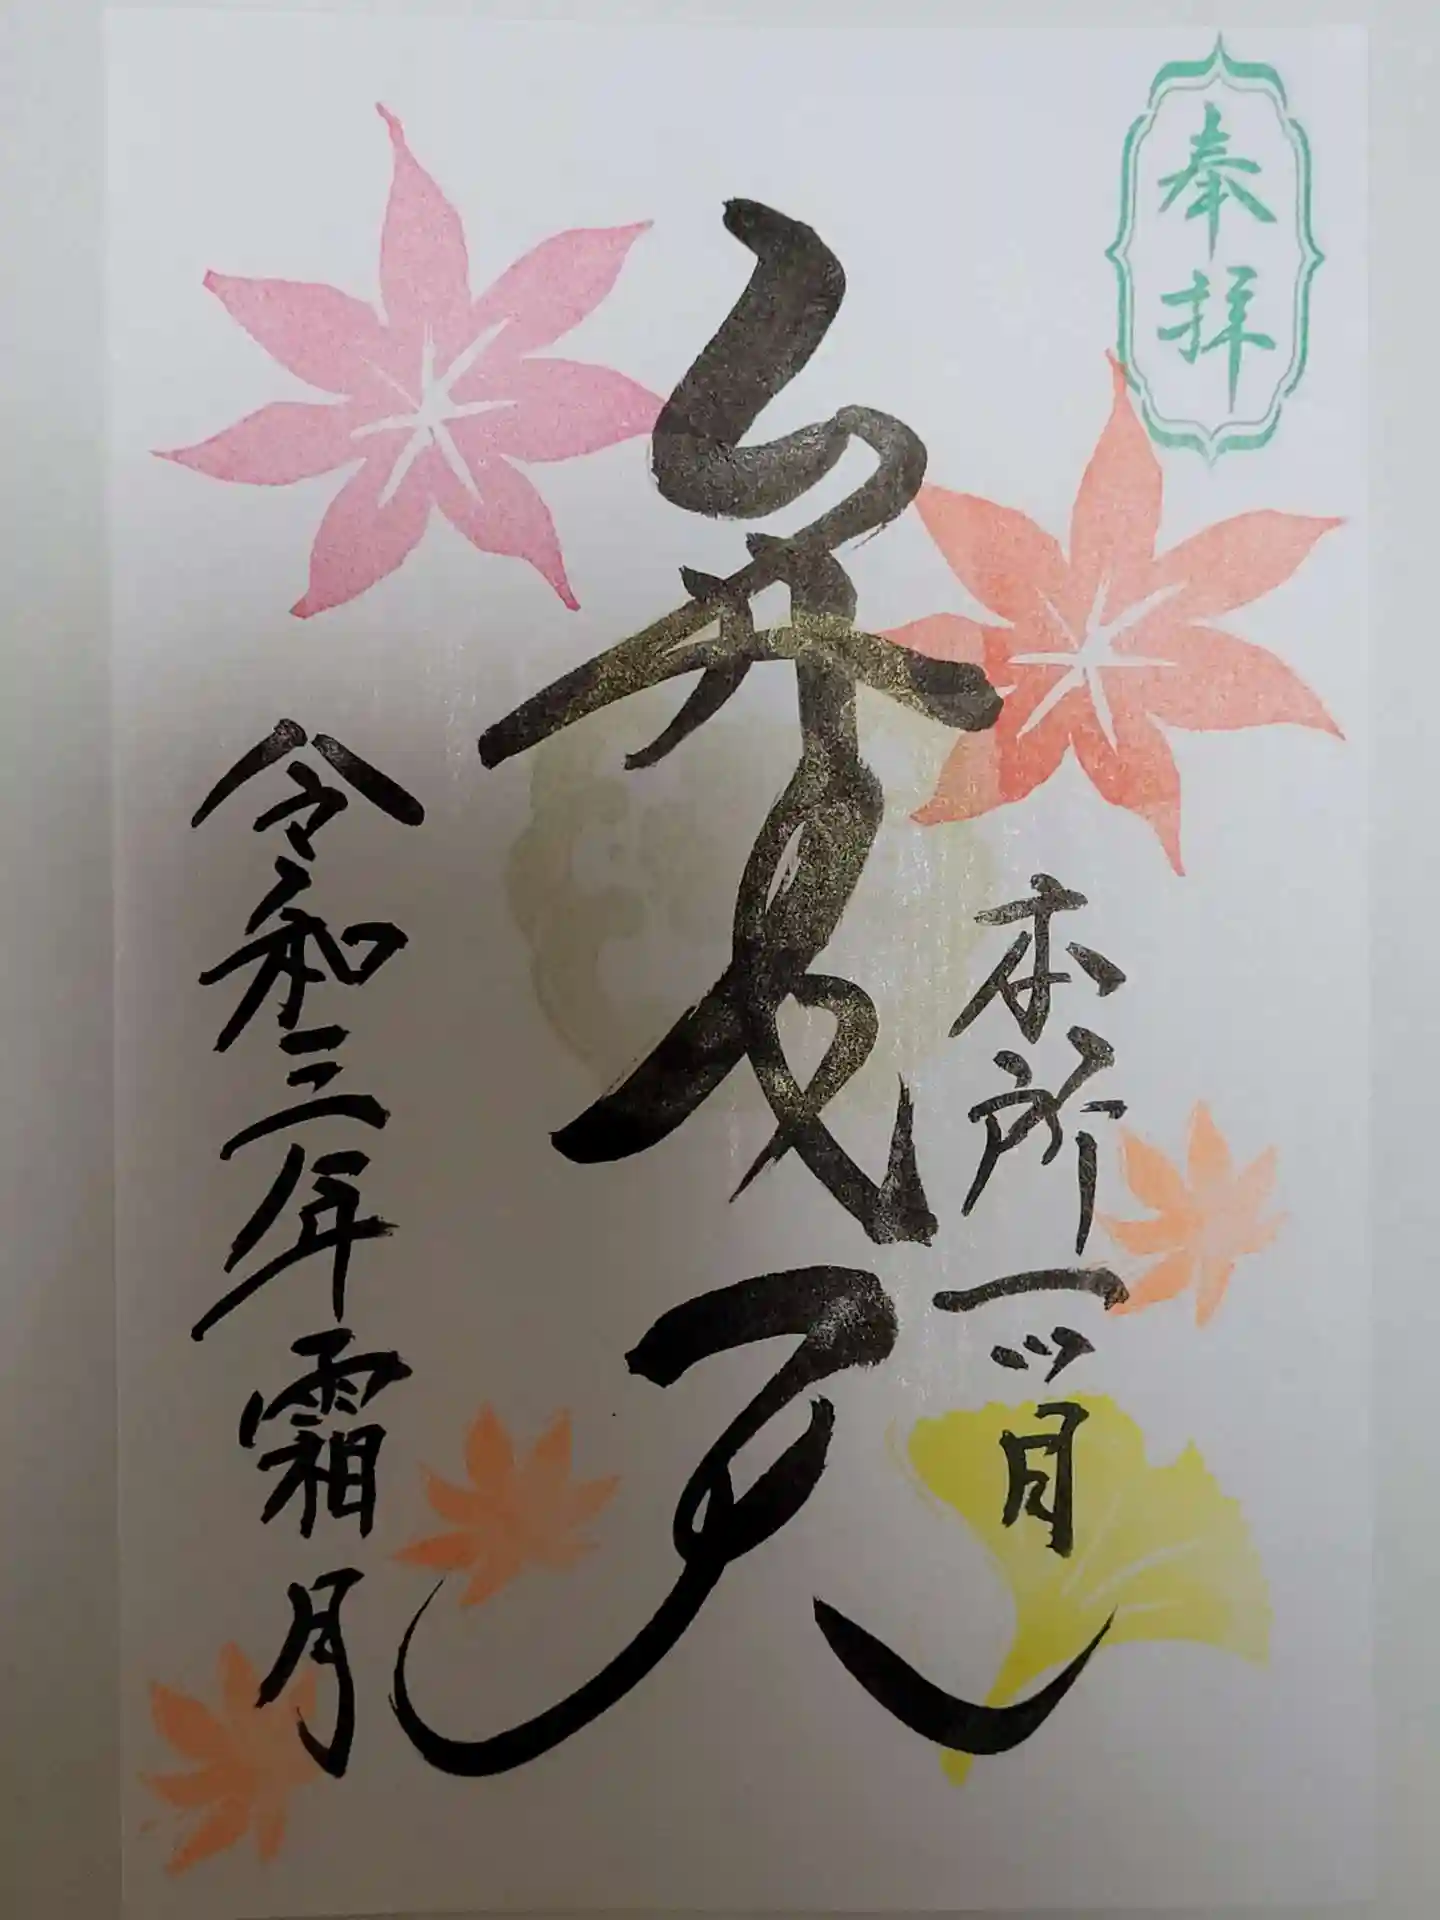 奉拝
本所一ツ目
弁財天
令和三年霜月